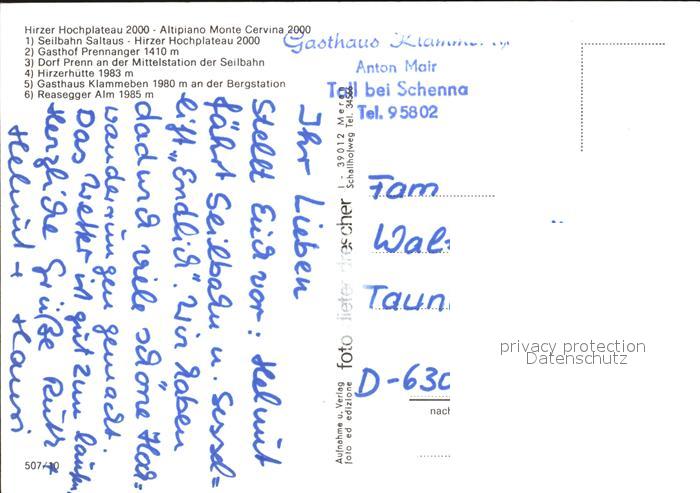 Hirzer Hochplateau 2000 - Altipiano Monte Cervina 2000
1) Seilbahn Saltaus - Hirzer Hochplateau 2000
2) Gasthof Prennanger 1410 m
3) Dorf Prenn an der Mittelstation der Seilbahn
4) Hirzerhütte 1983 m
5) Gasthaus Klammeben 1980 m an der Bergstation
6) Reasegger Alm 1985 m
Gasthaus
Anton Mair
Tall bei Schenna
Tel. 95802
Ihr Lieben
Stellt Euch vor: Helmut
fährt Seilbahn u. Sessel=
lift „Endlich". Wir haben
dadurch viele schöne Hoch=
wanderungen gemacht.
Das Wetter ist gut zum laufen.
Herzliche Grüße Ruth +
Helmut + Hansi
507/10
Aufnahme u. Verlag
foto ed edizione
foto dieter drescher
I - 39012 Meran
Schallhofweg Tel.
Fam
Wal
Taun
D-630
nach
privacy protection
Datenschutz